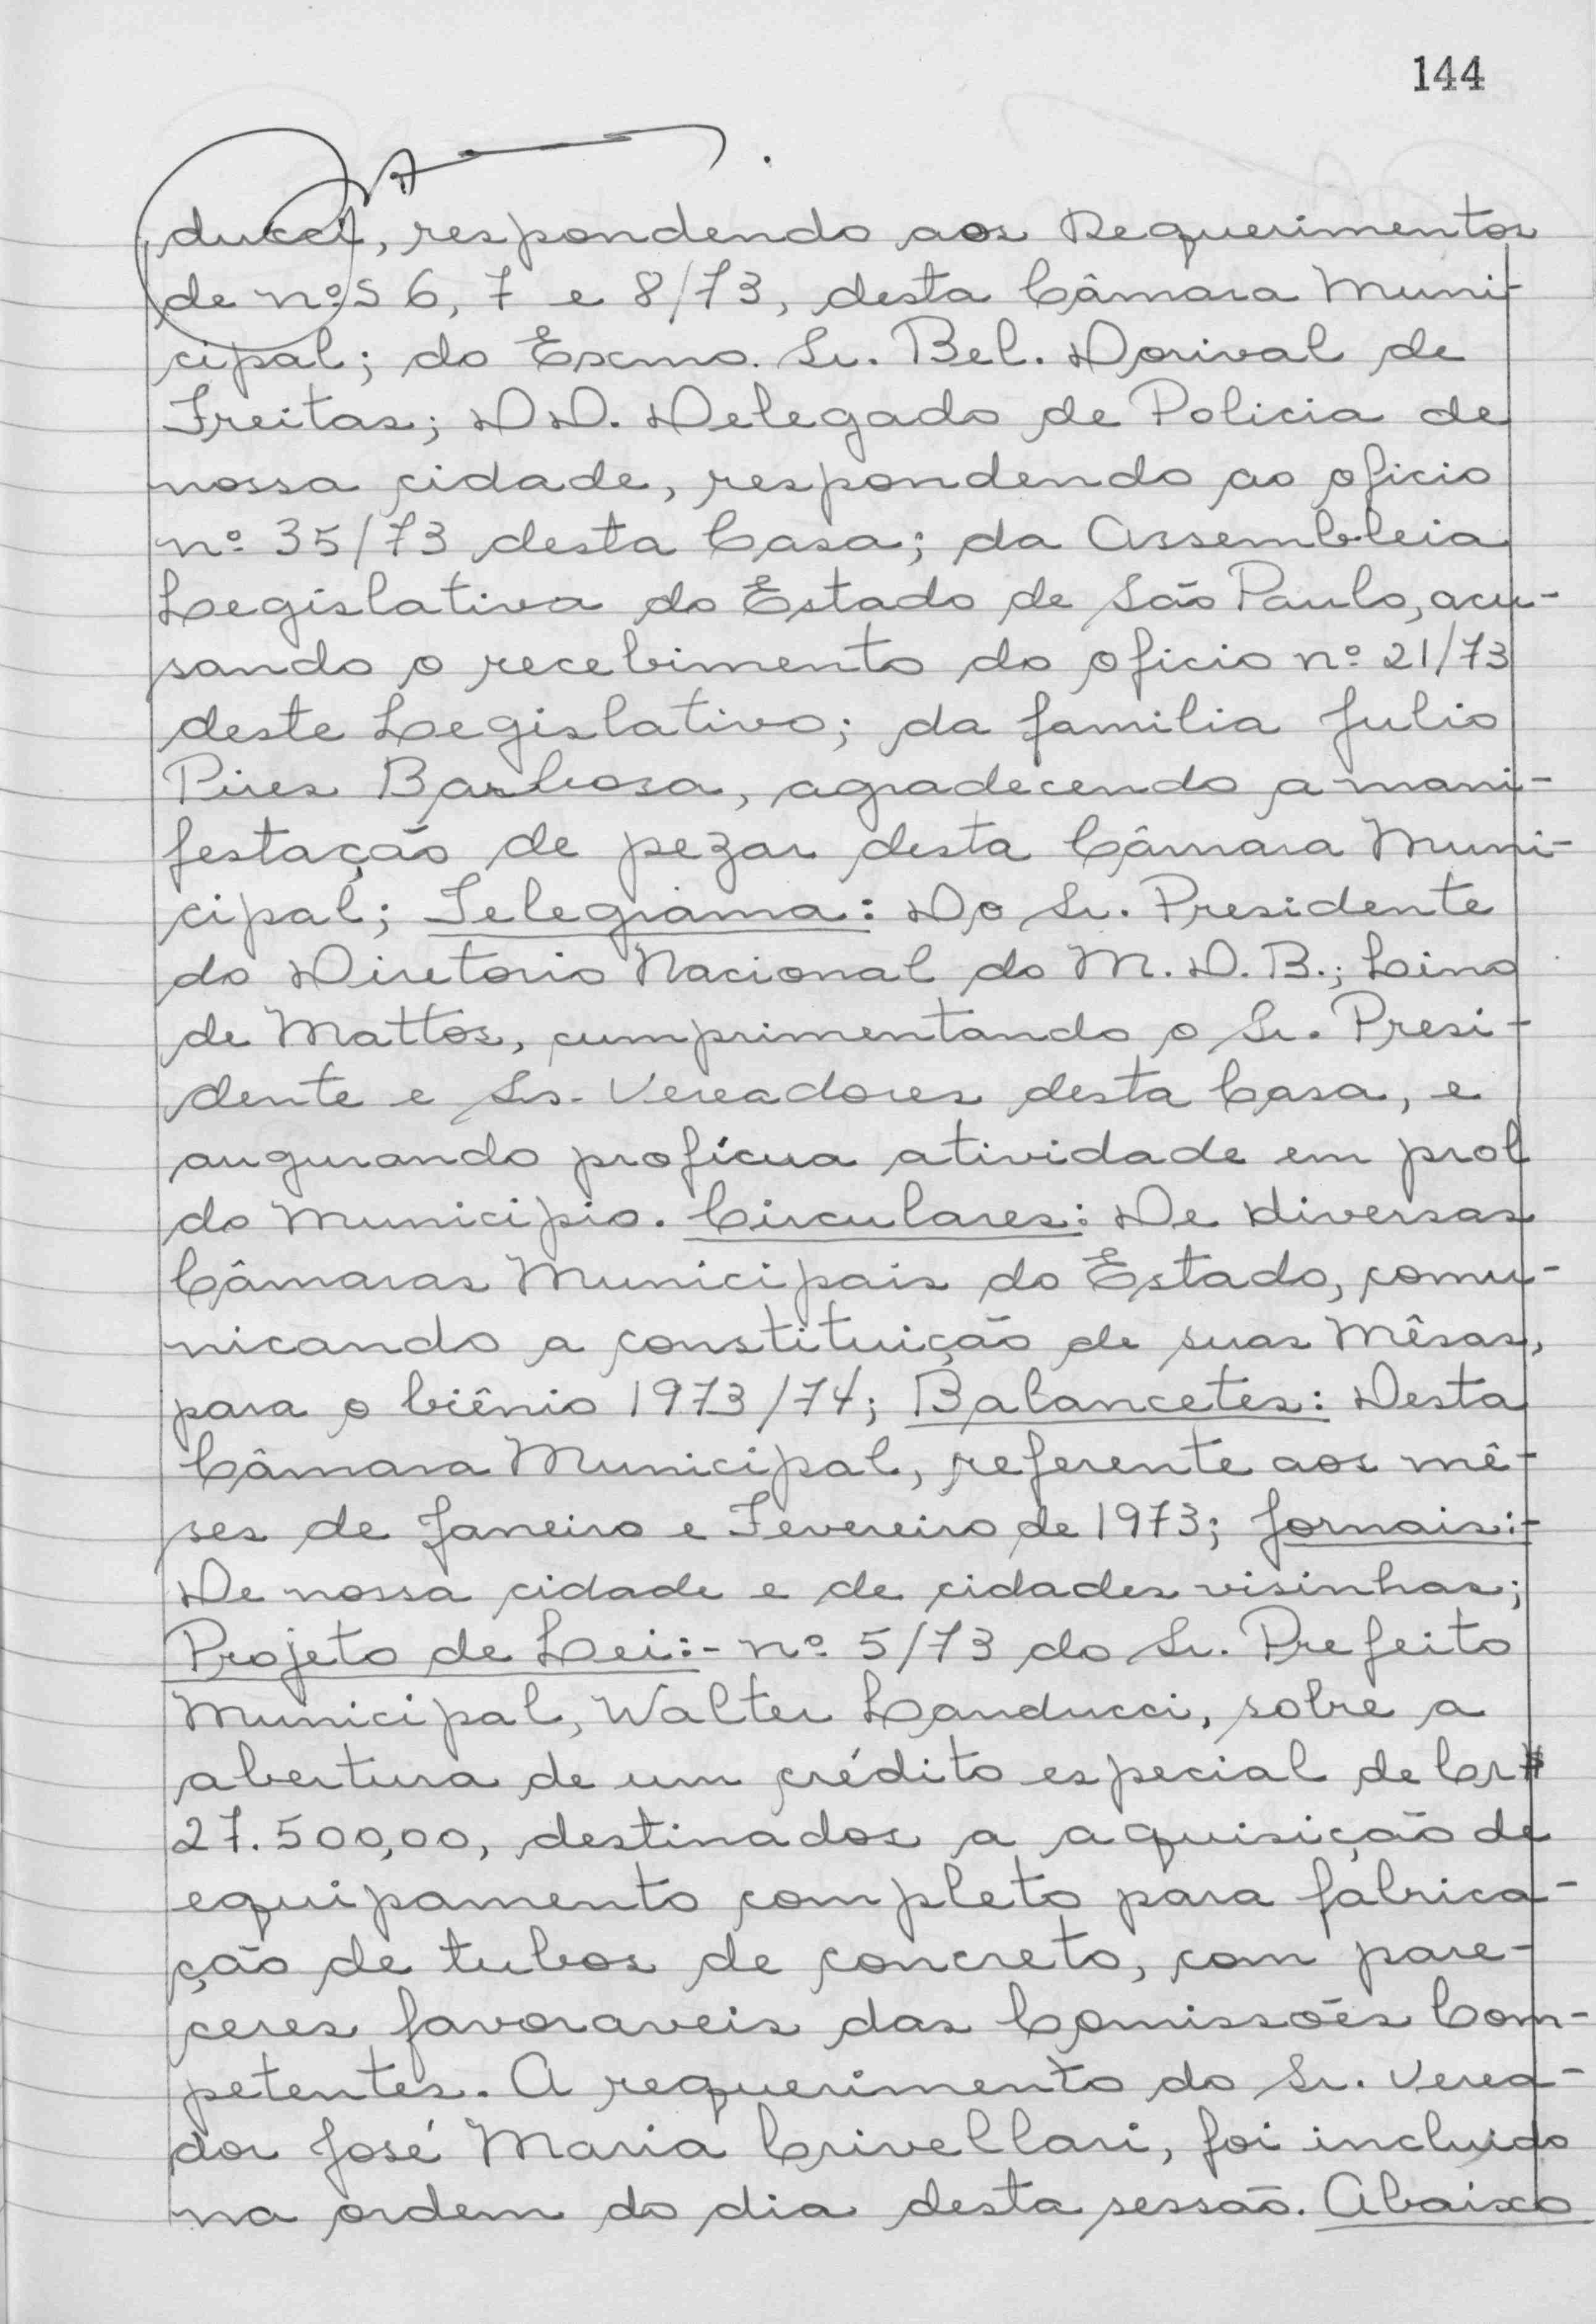 144
ducci, respondendo aos Requerimentos
de nºs 6, 7 e 8/73, desta Câmara Muni-
cipal; do Exmo. Sr. Bel. Dorival de
Freitas; DD. Delegado de Policia de
nossa cidade, respondendo ao oficio
nº 35/73 desta Casa; da Assembleia
Legislativa do Estado de São Paulo, acu-
sando o recebimento do oficio nº 21/73
deste Legislativo; da familia Julio
Pires Barbosa, agradecendo a mani-
festação de pezar desta Câmara Muni-
cipal; Telegrama: Do Sr. Presidente
do Diretorio Nacional do M.D.B.; Lino
de Mattos, cumprimentando o Sr. Presi-
dente e Srs. Vereadores desta Casa, e
augurando profícua atividade em prol
do Municipio. Circulares: De diversas
Câmaras Municipais do Estado, comu-
nicando a constituição de suas Mêsas,
para o biênio 1973/74; Balancetes: Desta
Câmara Municipal, referente aos mê-
ses de Janeiro e Fevereiro de 1973; Jornais:-
De nossa cidade e de cidades visinhas;
Projeto de Lei:- nº 5/73 do Sr. Prefeito
Municipal, Walter Landucci, sobre a
abertura de um crédito especial de Cr$
27.500,00, destinados a aquisição de
equipamento completo para fabrica-
ção de tubos de concreto, com pare-
ceres favoraveis das Comissões Com-
petentes. A requerimento do Sr. Verea-
dor José Maria Crivellari, foi incluido
na ordem do dia desta sessão. Abaixo